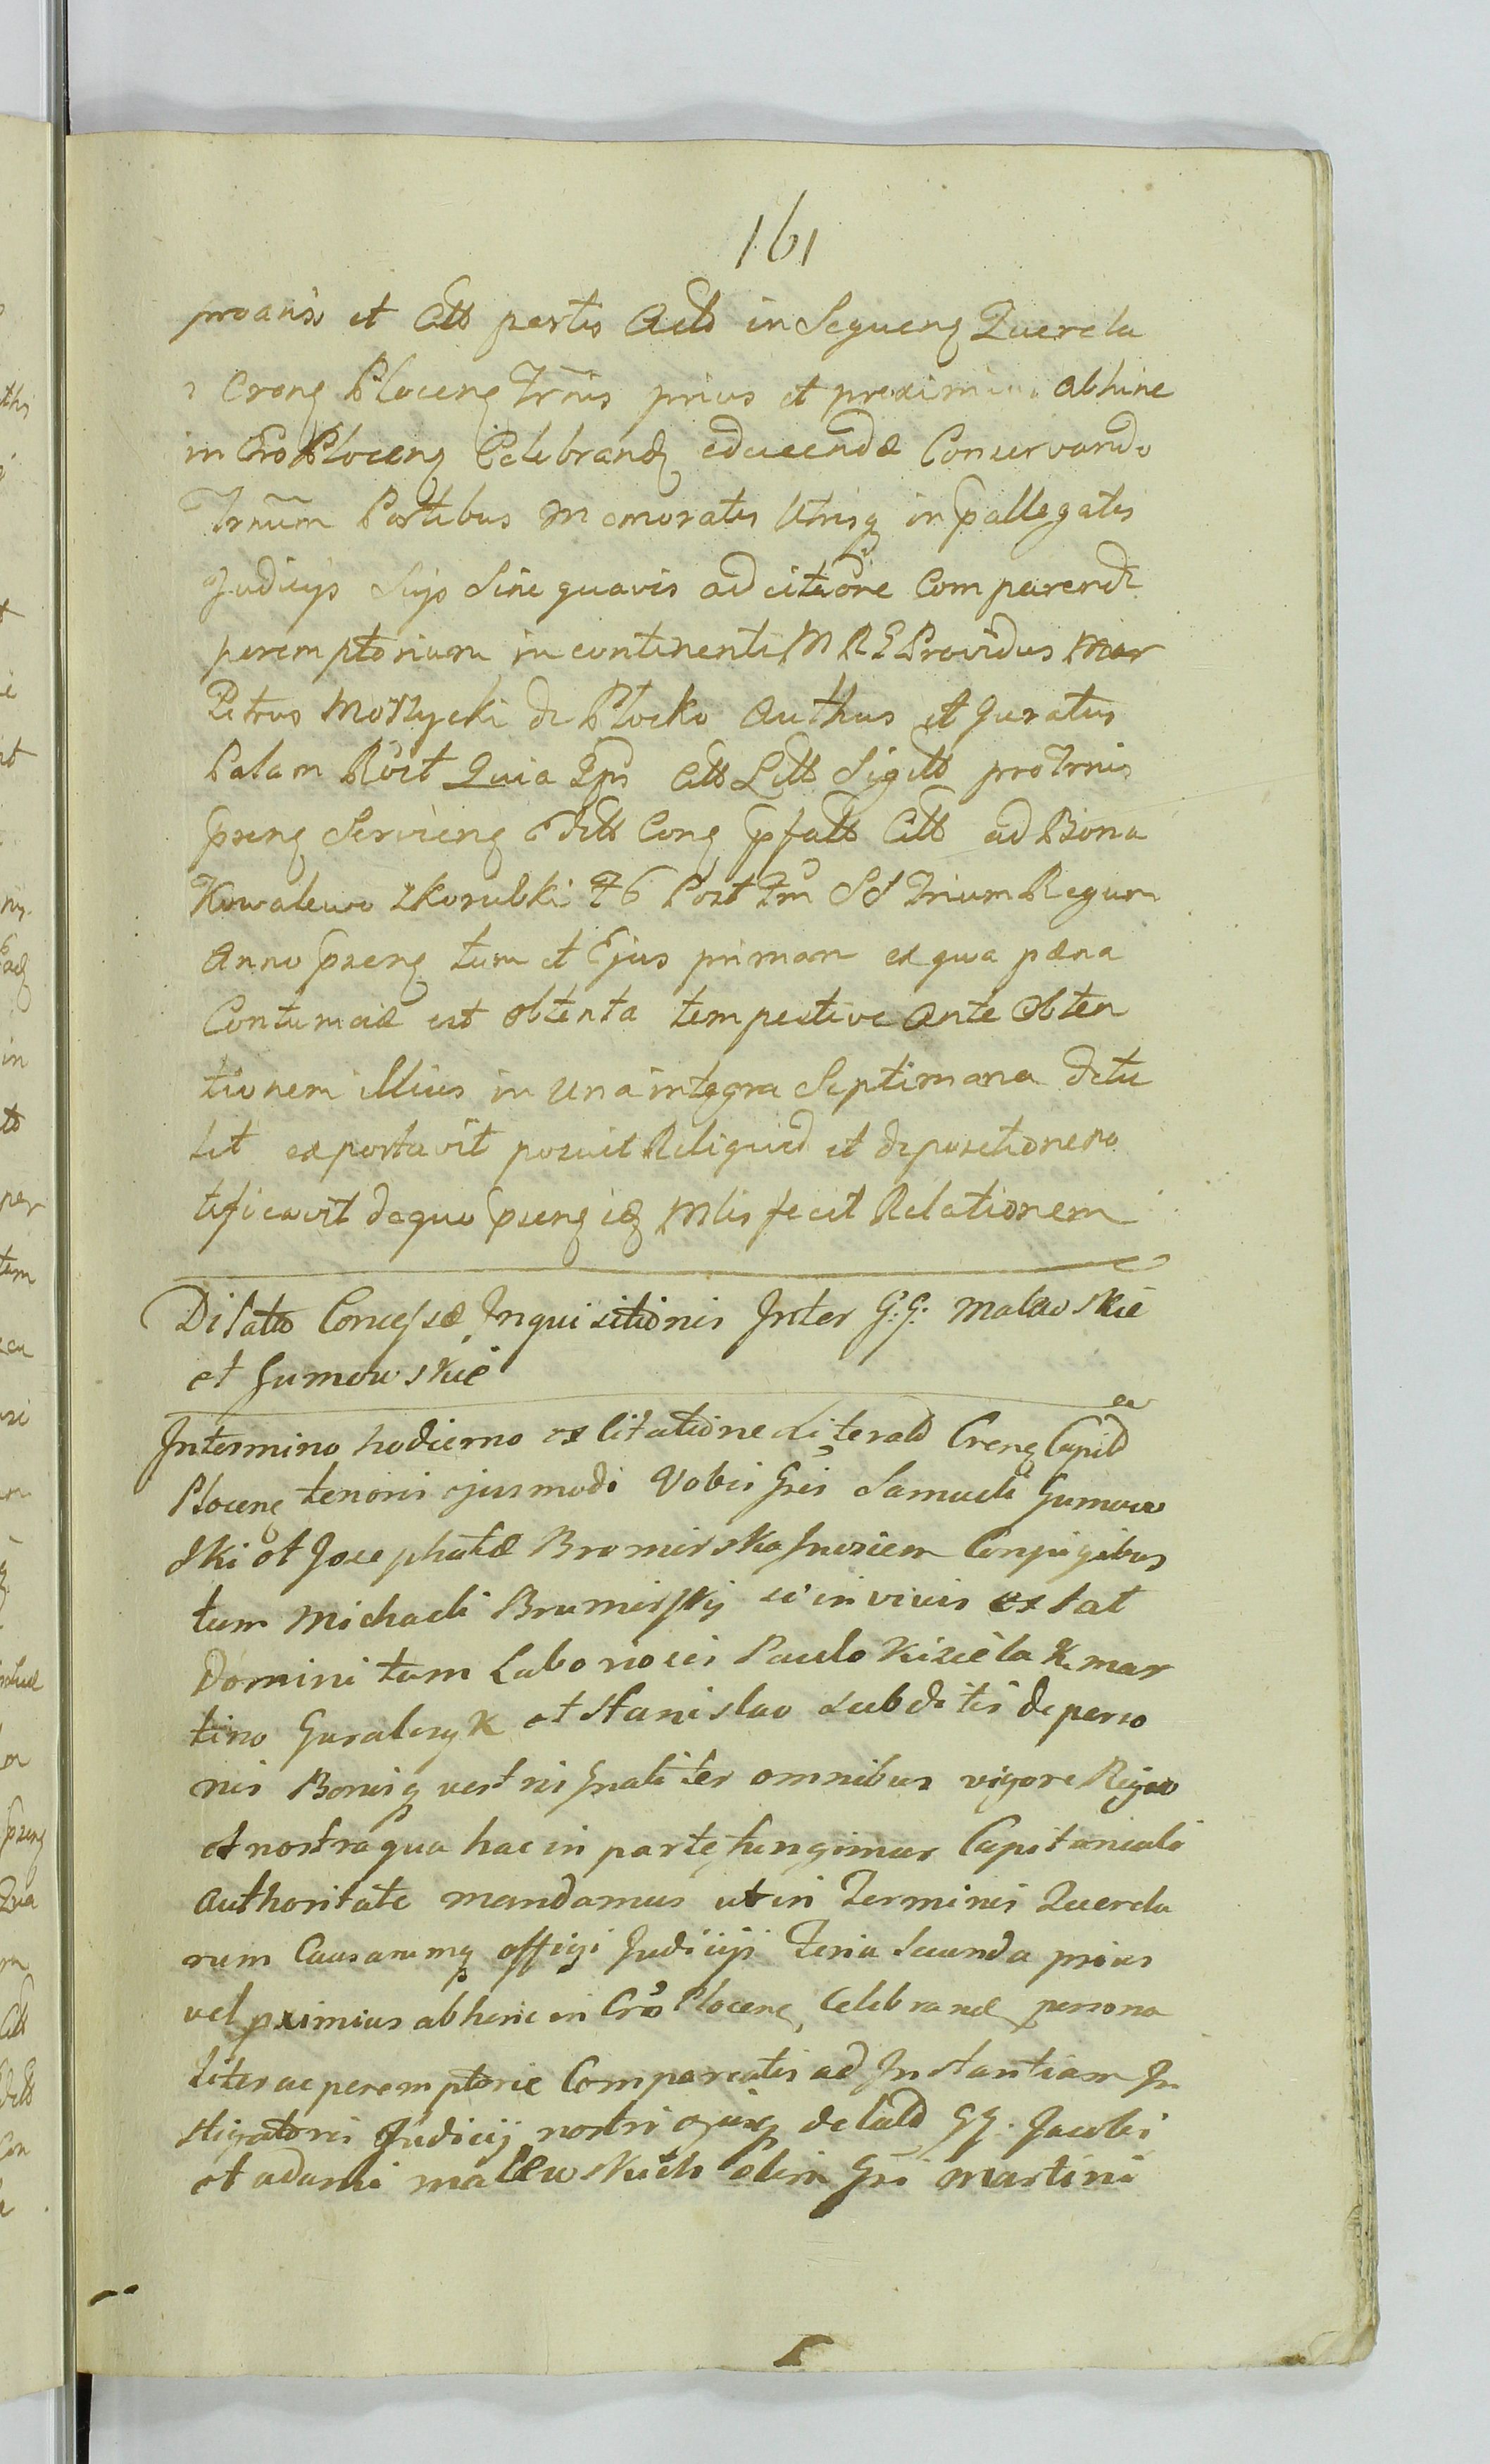 161
proauso et Citt partis Actd in Sequeng Querela
Crong Ploceng Trnis prius et proximius abhinc
in Cro Ploceng Celebrand educendæ Conservando
Trnum Partibus memoratis Utrisq in pallegatis
Judicijs Sujs Sine quavis adcitaone Comparendi
peremptorium in continenti M R E Providus Mar
Petrus Moszycki de Plocko Authus et Juratus
Palam Rōit Quia Ips Citt Litt Sigitt pro Trnis
pseng Servieng Editt Cong pfatt Citt ad Bona
Kowalewo Skorubki F 6 Post Fm SS Trium Regum
Anno pseng tum et Ejus primam ex qua pæna
Contumaciæ est obtenta tempestive ante obten
tionem illius in una integra Septimana detu
lit exportavit posuit Reliquid et depositionem no
tificavit dequo pseng idq Mlis fecit Relationem
Dilatio Concessæ Inquisitionis Inter G.G. Malewskie
et Gumowskie
In termino hodierno ex Citatione Literald Creng Capitd
Ploceng tenoris ejusmodi Vobis Gsis Samueli Gumow
ski et Josephatæ Bromirska Gnosiem Conjugibus
tum Michaeli Bromirskij si in vivis extat
Domini tum Laboriosis Paulo Kisiela K mar
tino Guralczyk et Stanislao Subditis de perso
nis Bonisq vestris Gnaliter omnibus vigore Regia
et nostra qua hac in parte fungimur Capitaneali
Authoritate mandamus ut in Terminis Querela
rum Causarumq officij Judicijs Feria Secunda prius
vel pximius abhinc in Cro Ploceng Celebrand persona
liter ac peremptorie Compareatis ad Instantiam In
stigatoris Judicij nostri ejusq delatd GG. Jacobi
et adami malewskich olim Gsi Martini